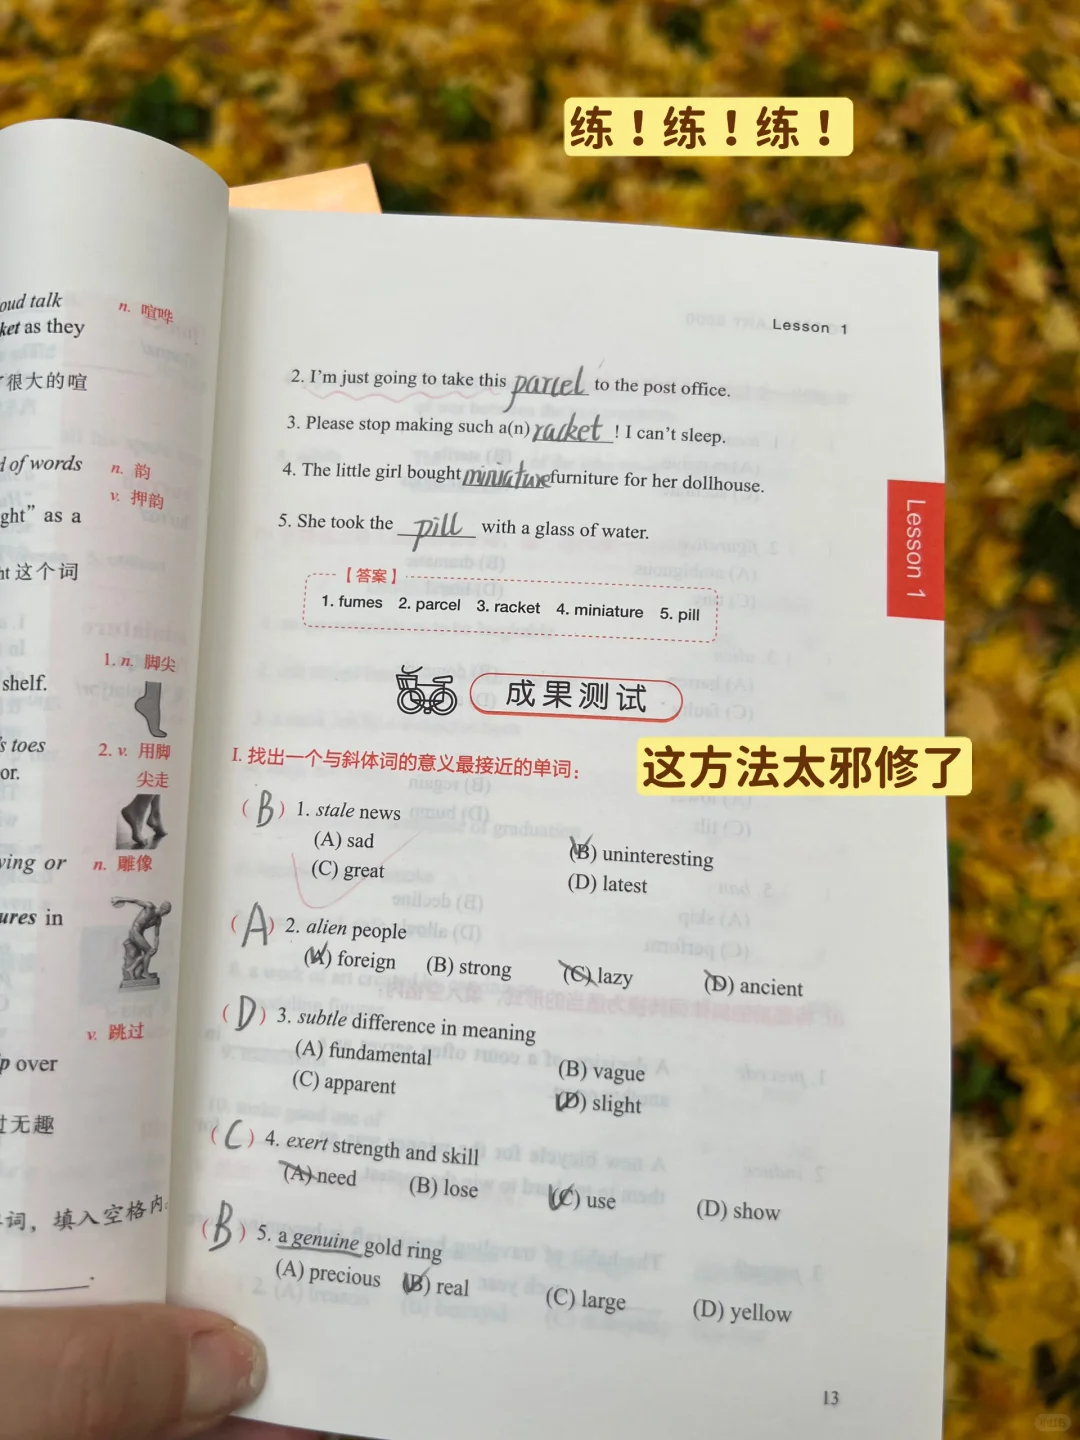 练！练！练！
Lesson 1
oud talk
n. 喧哗
ket as they
很大的喧
d of words
n. 韵
v. 押韵
ght” as a
ht 这个词
1. n. 脚尖
shelf.
's toes
2. v. 用脚
尖走
or.
ving or
n. 雕像
ures in
v. 跳过
p over
过无趣
词，填入空格内:
2. I’m just going to take this parcel to the post office.
3. Please stop making such a(n) racket ! I can’t sleep.
4. The little girl bought miniature furniture for her dollhouse.
5. She took the pill with a glass of water.
【答案】
1. fumes 2. parcel 3. racket 4. miniature 5. pill
Lesson 1
成果测试
这方法太邪修了
I. 找出一个与斜体词的意义最接近的单词：
( B ) 1. stale news
(A) sad (B) uninteresting
(C) great (D) latest
( A ) 2. alien people
(A) foreign (B) strong (C) lazy (D) ancient
( D ) 3. subtle difference in meaning
(A) fundamental (B) vague
(C) apparent (D) slight
( C ) 4. exert strength and skill
(A) need (B) lose (C) use (D) show
( B ) 5. a genuine gold ring
(A) precious (B) real (C) large (D) yellow
13